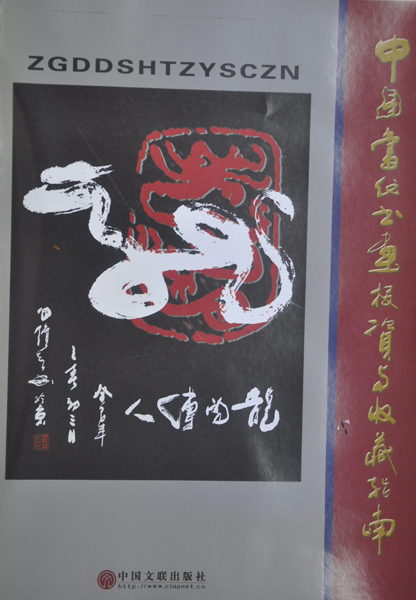 ZGDDSHTZYSCZN
中国当代书画投资与收藏指南
龍的傳人
中国文联出版社
http://www.clapnet.cn